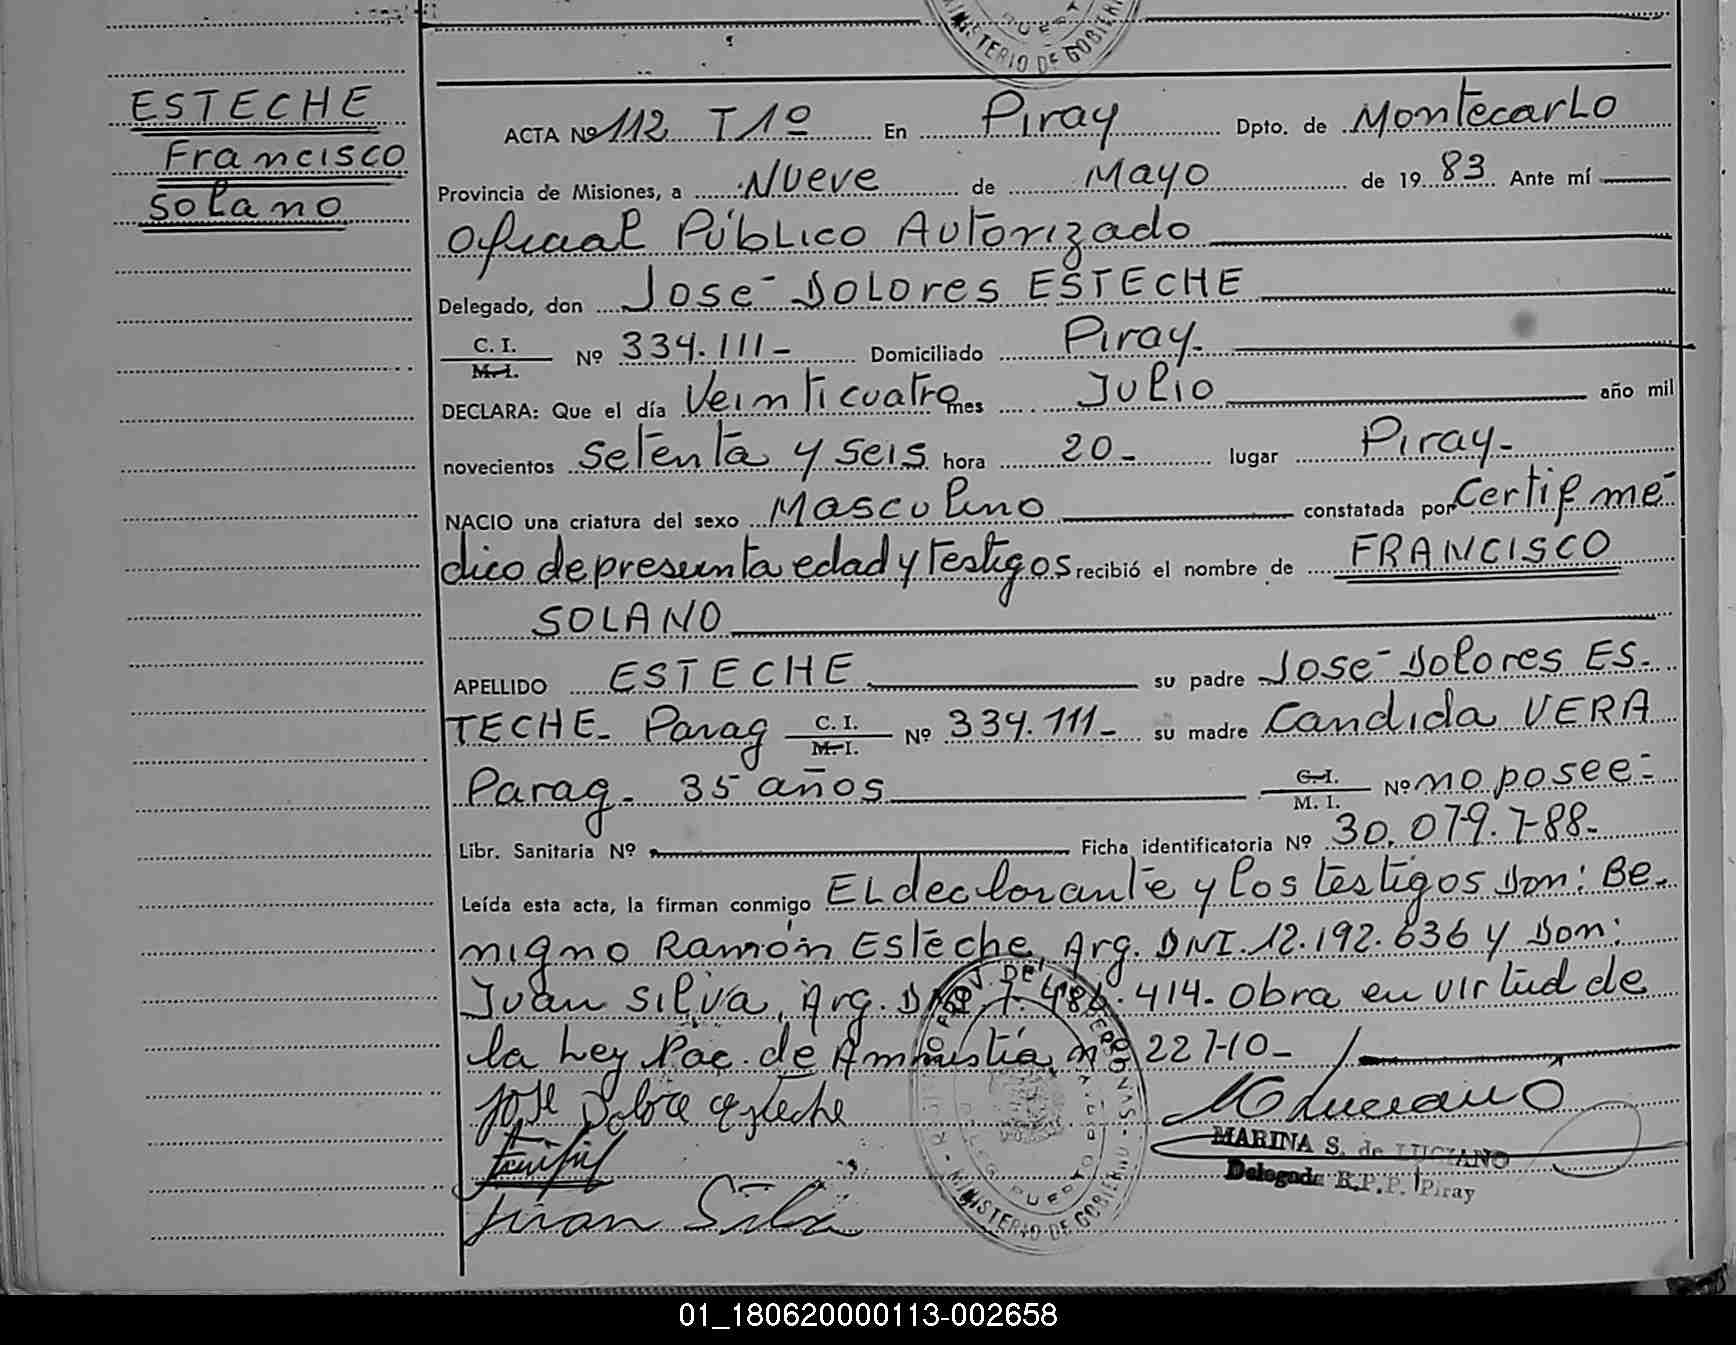 MINISTERIO DE GOBIER
ESTECHE
Francisco
Solano
ACTA Nº 112 T 1º En Piray Dpto. de Montecarlo
Provincia de Misiones, a Nueve de Mayo de 1983 Ante mí
Oficial Público Autorizado
Delegado, don José Dolores ESTECHE
C. I. / M. I. Nº 334.111- Domiciliado Piray.
DECLARA: Que el día Veinticuatro mes Julio año mil
novecientos setenta y seis hora 20- lugar Piray-
NACIO una criatura del sexo Masculino constatada por Certif mé
dico de presunta edad y Testigos recibió el nombre de FRANCISCO
SOLANO
APELLIDO ESTECHE su padre José Dolores ES-
TECHE- Parag C. I. / M. I. Nº 334.111- su madre Candida VERA
Parag- 35 años C. I. / M. I. Nº no posee-
Libr. Sanitaria Nº Ficha identificatoria Nº 30.079.788-
Leída esta acta, la firman conmigo El declarante y los testigos Don: Be-
nigno Ramón Esteche, Arg. DNI. 12.192.636 y Don:
Juan Silva, Arg. 414- Obra en virtud de
la Ley Nac. de Amnistía nº 22710-
José Dolore esteche
MARINA S. de LUCIANO
Delegada R.P.P. Piray
Juan Silva
MINISTERIO DE GOBIERNO
01_180620000113-002658